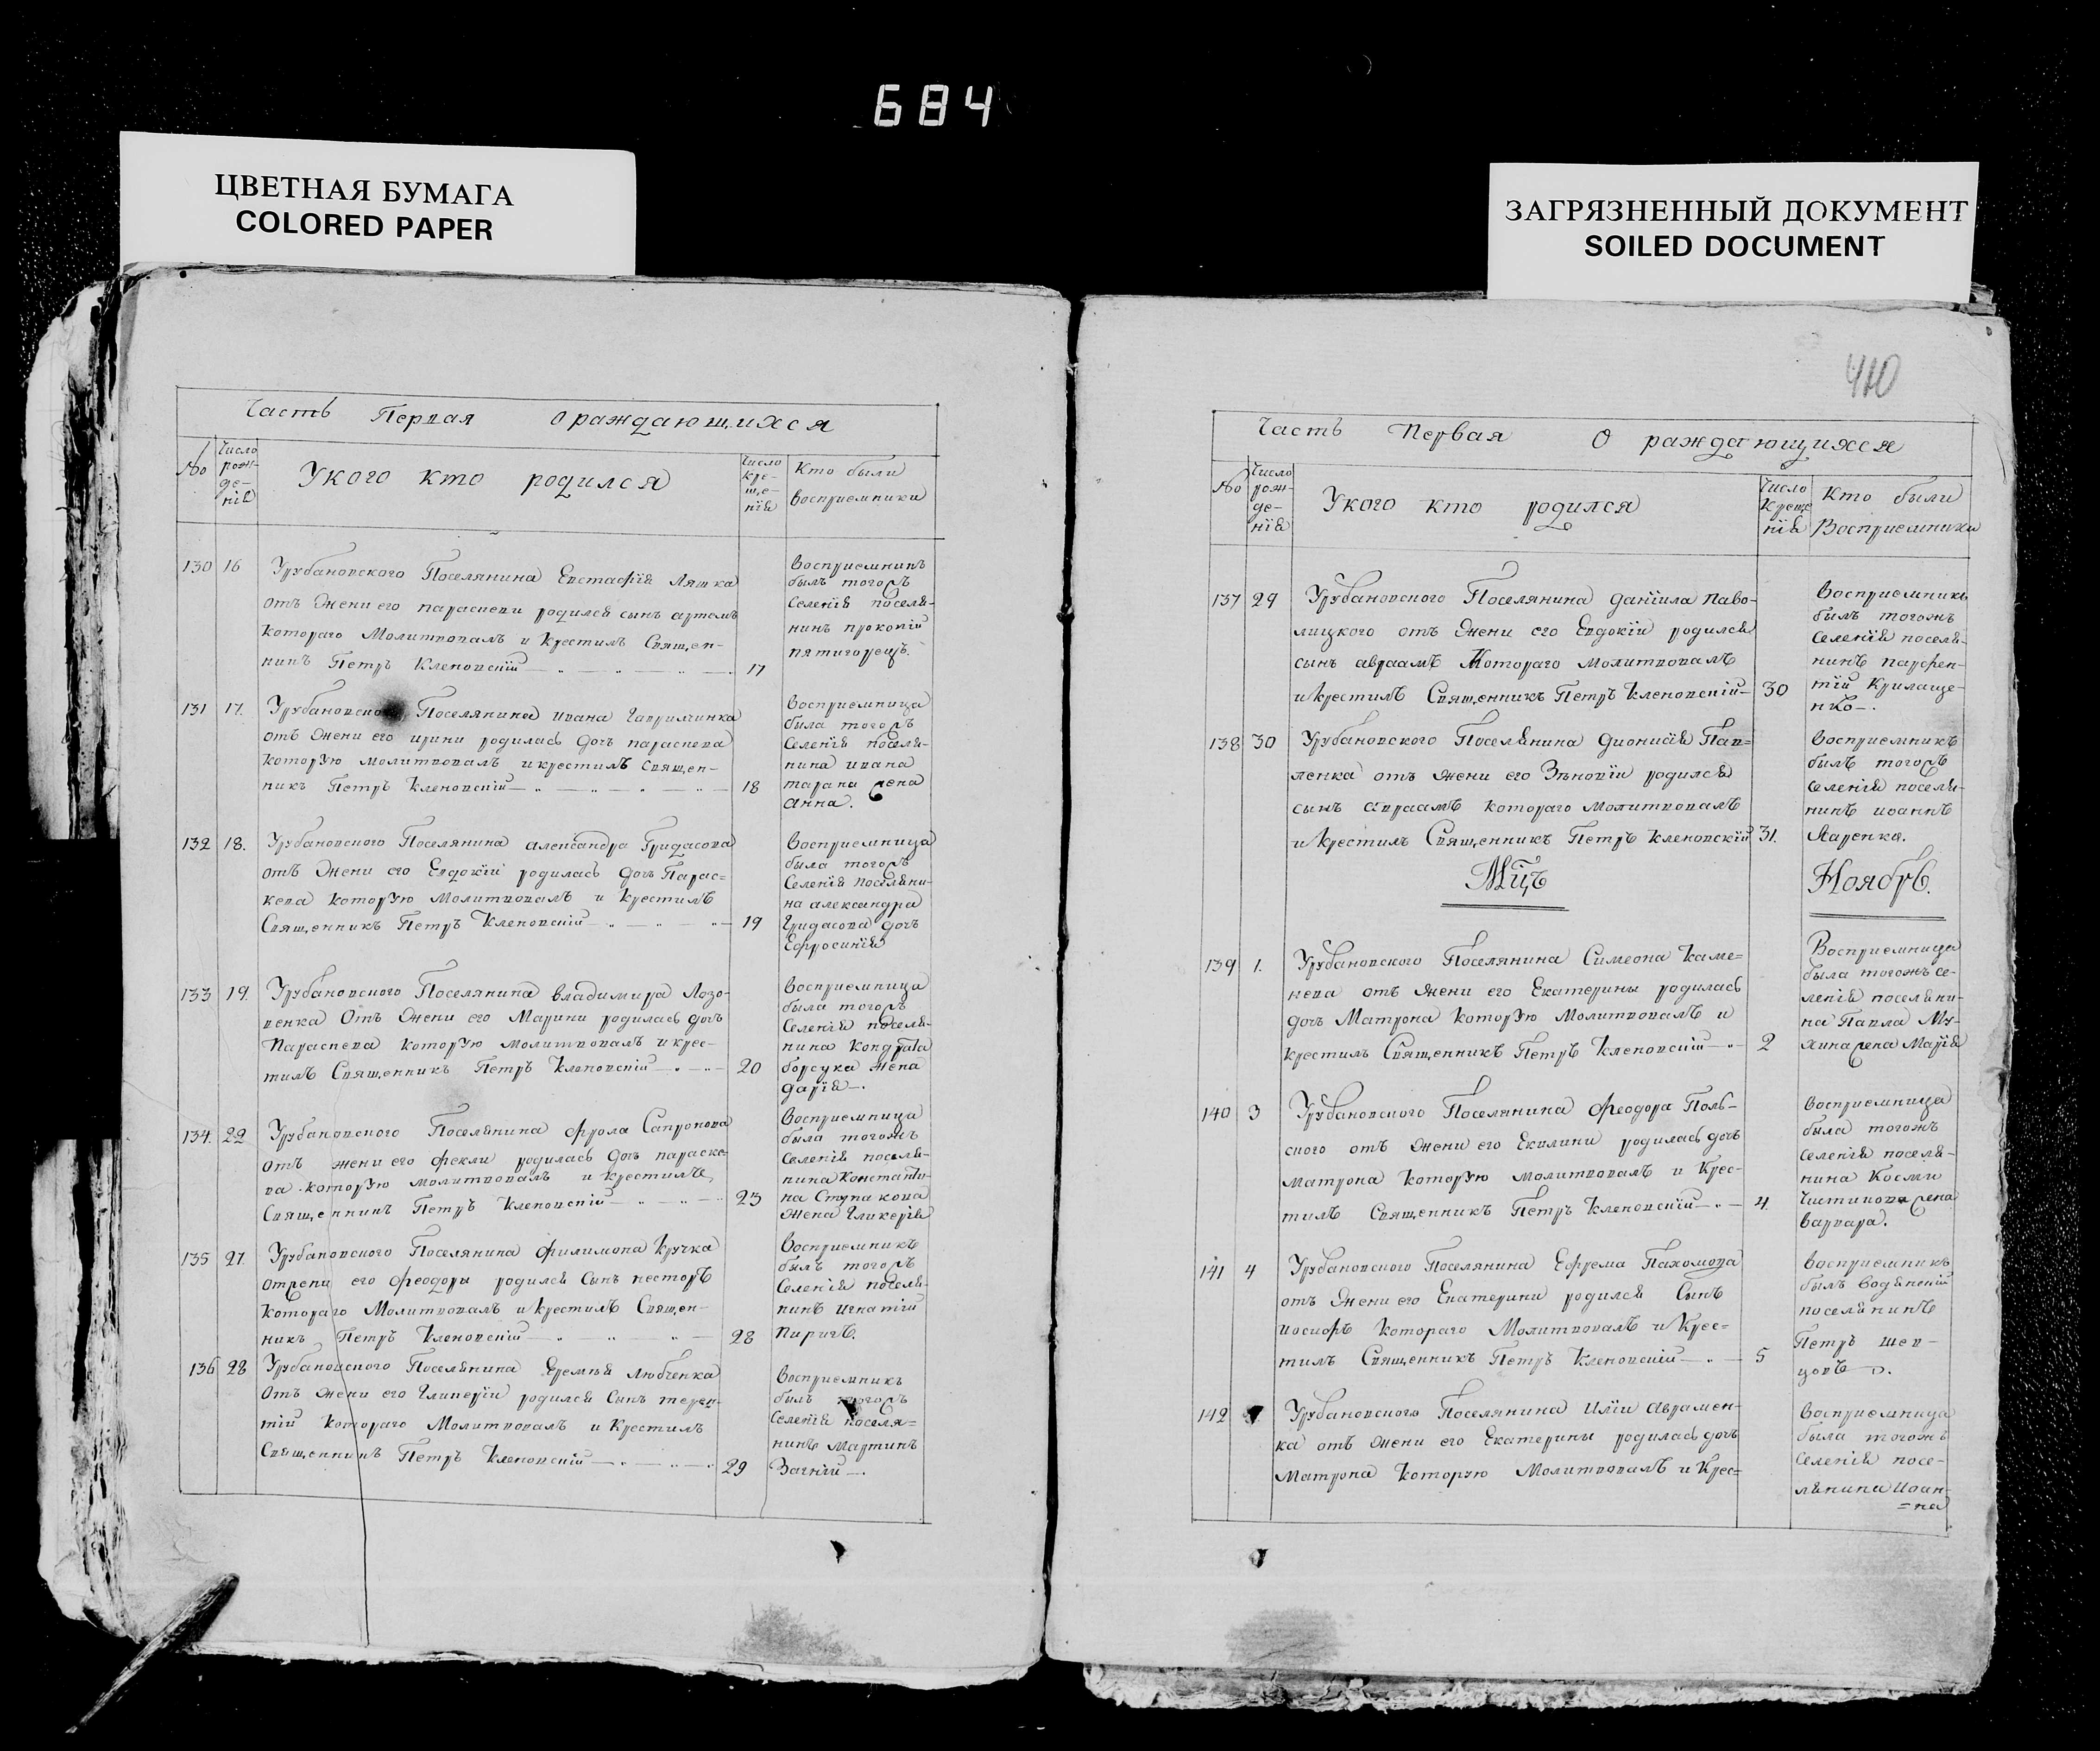 684
ЦВЕТНАЯ БУМАГА
COLORED PAPER
ЗАГРЯЗНЕННЫЙ ДОКУМЕНТ
SOILED DOCUMENT
Часть Первая О раждающихся
No
Число рож-де-нiя
Укого кто родился
Число кре-ще-нiя
Кто были восприемники
130 16 Урубановского Поселянина Евстафiя Ляшка
отъ жени его параскеви родился сынъ артемъ
котораго Молитвовалъ и Крестилъ Священ-
никъ Петръ Кленовскiй 17
восприемникъ
былъ тогожъ
Селенiя поселя-
нинъ прокопiй
пятигорецъ.
131 17. Урубановского Поселянина ивана Гаврилинка
отъ жени его ирини родилась дочь параскева
которую молитвовалъ и крестилъ Священ-
никъ Петръ Кленовскiй 18
восприемница
была тогожъ
Селенiя поселя-
нина ивана
тарана жена
анна.
132 18. Урубановского Поселянина александра Гридасова
отъ Жени его Евдокiй родилась дочь Парас=
кева которую молитвовалъ и крестилъ
Священникъ Петръ Кленовскiй 19
восприемница
была тогожъ
Селенiя поселяни-
на александра
Гридасова дочь
Ефросинiя
133 19. Урубановского Поселянина владимира Лозо-
венка Отъ Жени его Марини родилась дочь
Параскева которую молитвовалъ и крес-
тилъ Священникъ Петръ Кленовскiй 20
восприемница
была тогожъ
Селенiя поселя-
нина Кондрата
борсука жена
дарiя.
134. 22 Урубановского Поселянина фрола Сапронова
отъ жени его фекли родилась дочь параске-
ва которую молитвовалъ и крестилъ
Священникъ Петръ Кленовскiй 23
восприемница
была тогожъ
Селенiя поселя-
нина Константи-
на Ступакова
жена Гликерiя
135 27. Урубановского Поселянина филимона Кручка
отжени его феодоры родился Сынъ несторъ
котораго Молитвовалъ и крестилъ Священ-
никъ Петръ Кленовскiй 28
Восприемникъ
былъ тогожъ
Селенiя поселя-
нинъ игнатiй
Пиригъ.
136 28 Урубановского Поселянина Еремѣя Любченка
Отъ жени его Гликерiи родился Сынъ терен-
тiй котораго Молитвовалъ и Крестилъ
Священникъ Петръ Кленовскiй 29
Восприемникъ
былъ тогожъ
Селенiя поселя=
нинъ Мартинъ
Загнiй.
410
Часть Первая О раждающихся
No
Число рож-де-нiя
Укого кто родился
Число Креще нiя
Кто были Восприемники
137 29 Урубановского Поселянина данiила Паво-
лицкого отъ Жени его Евдокiи родился
сынъ авраамъ Котораго молитвовалъ
и крестилъ Священникъ Петръ Кленовскiй 30
Восприемникъ
былъ тогожъ
Селенiя поселя-
нинъ парфен-
тiй Крилаще-
нко.
138 30 Урубановского Поселянина дионисiя Пав=
ленка отъ жени его Зѣновiи родился
сынъ авраамъ котораго молитвовалъ
и крестилъ Священникъ Петръ Кленовскiй 31.
восприемникъ
былъ тогожъ
Селенiя поселя-
нинъ иоаннъ
Яаренка.
Мцъ Ноябрь.
139 1. Урубановского Поселянина Симеона Каме=
нева отъ жени его Екатерины родилась
дочь Матрона которую Молитвовалъ и
крестилъ Священникъ Петръ Кленовскiй 2
Восприемница
была тогожъ се-
ленiя поселяни-
на Павла Му-
хина жена Марiя
140 3 Урубановского Поселянина феодора Поль-
ского отъ жени его Екилини родилась дочь
матрона которую молитвовалъ и Крес-
тилъ Священникъ Петръ Кленовскiй 4
восприемница
была тогожъ
селенiя поселя-
нина Косми
Чистикова жена
варвара.
141 4 Урубановского Поселянина Ефрема Пахомова
отъ Жени его Екатерини родился Сынъ
иосифъ котораго Молитвовалъ и Крес=
тилъ Священникъ Петръ Кленовскiй 5
восприемникъ
былъ водянскiй
поселянинъ
Петръ шев-
цовъ.
142 Урубановского Поселянина Илiи Аврамен-
ка отъ жени его Екатерины родилась дочь
Матрона которую Молитвовалъ и Крес=
восприемница
была тогожъ
Селенiя посе-
лянина Иоан-
=на